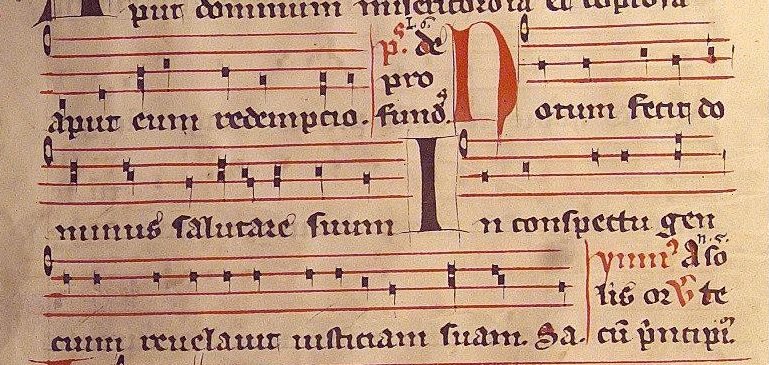 Aput dominum misericordia et copiosa
aput eum redemptio.
ps. de
pro
fund.
Notum fecit do
minus salutare suum In conspectu gen
cium reuelauit iusticiam suam. Sa.
ymnus A so
lis or V te
cū principi.